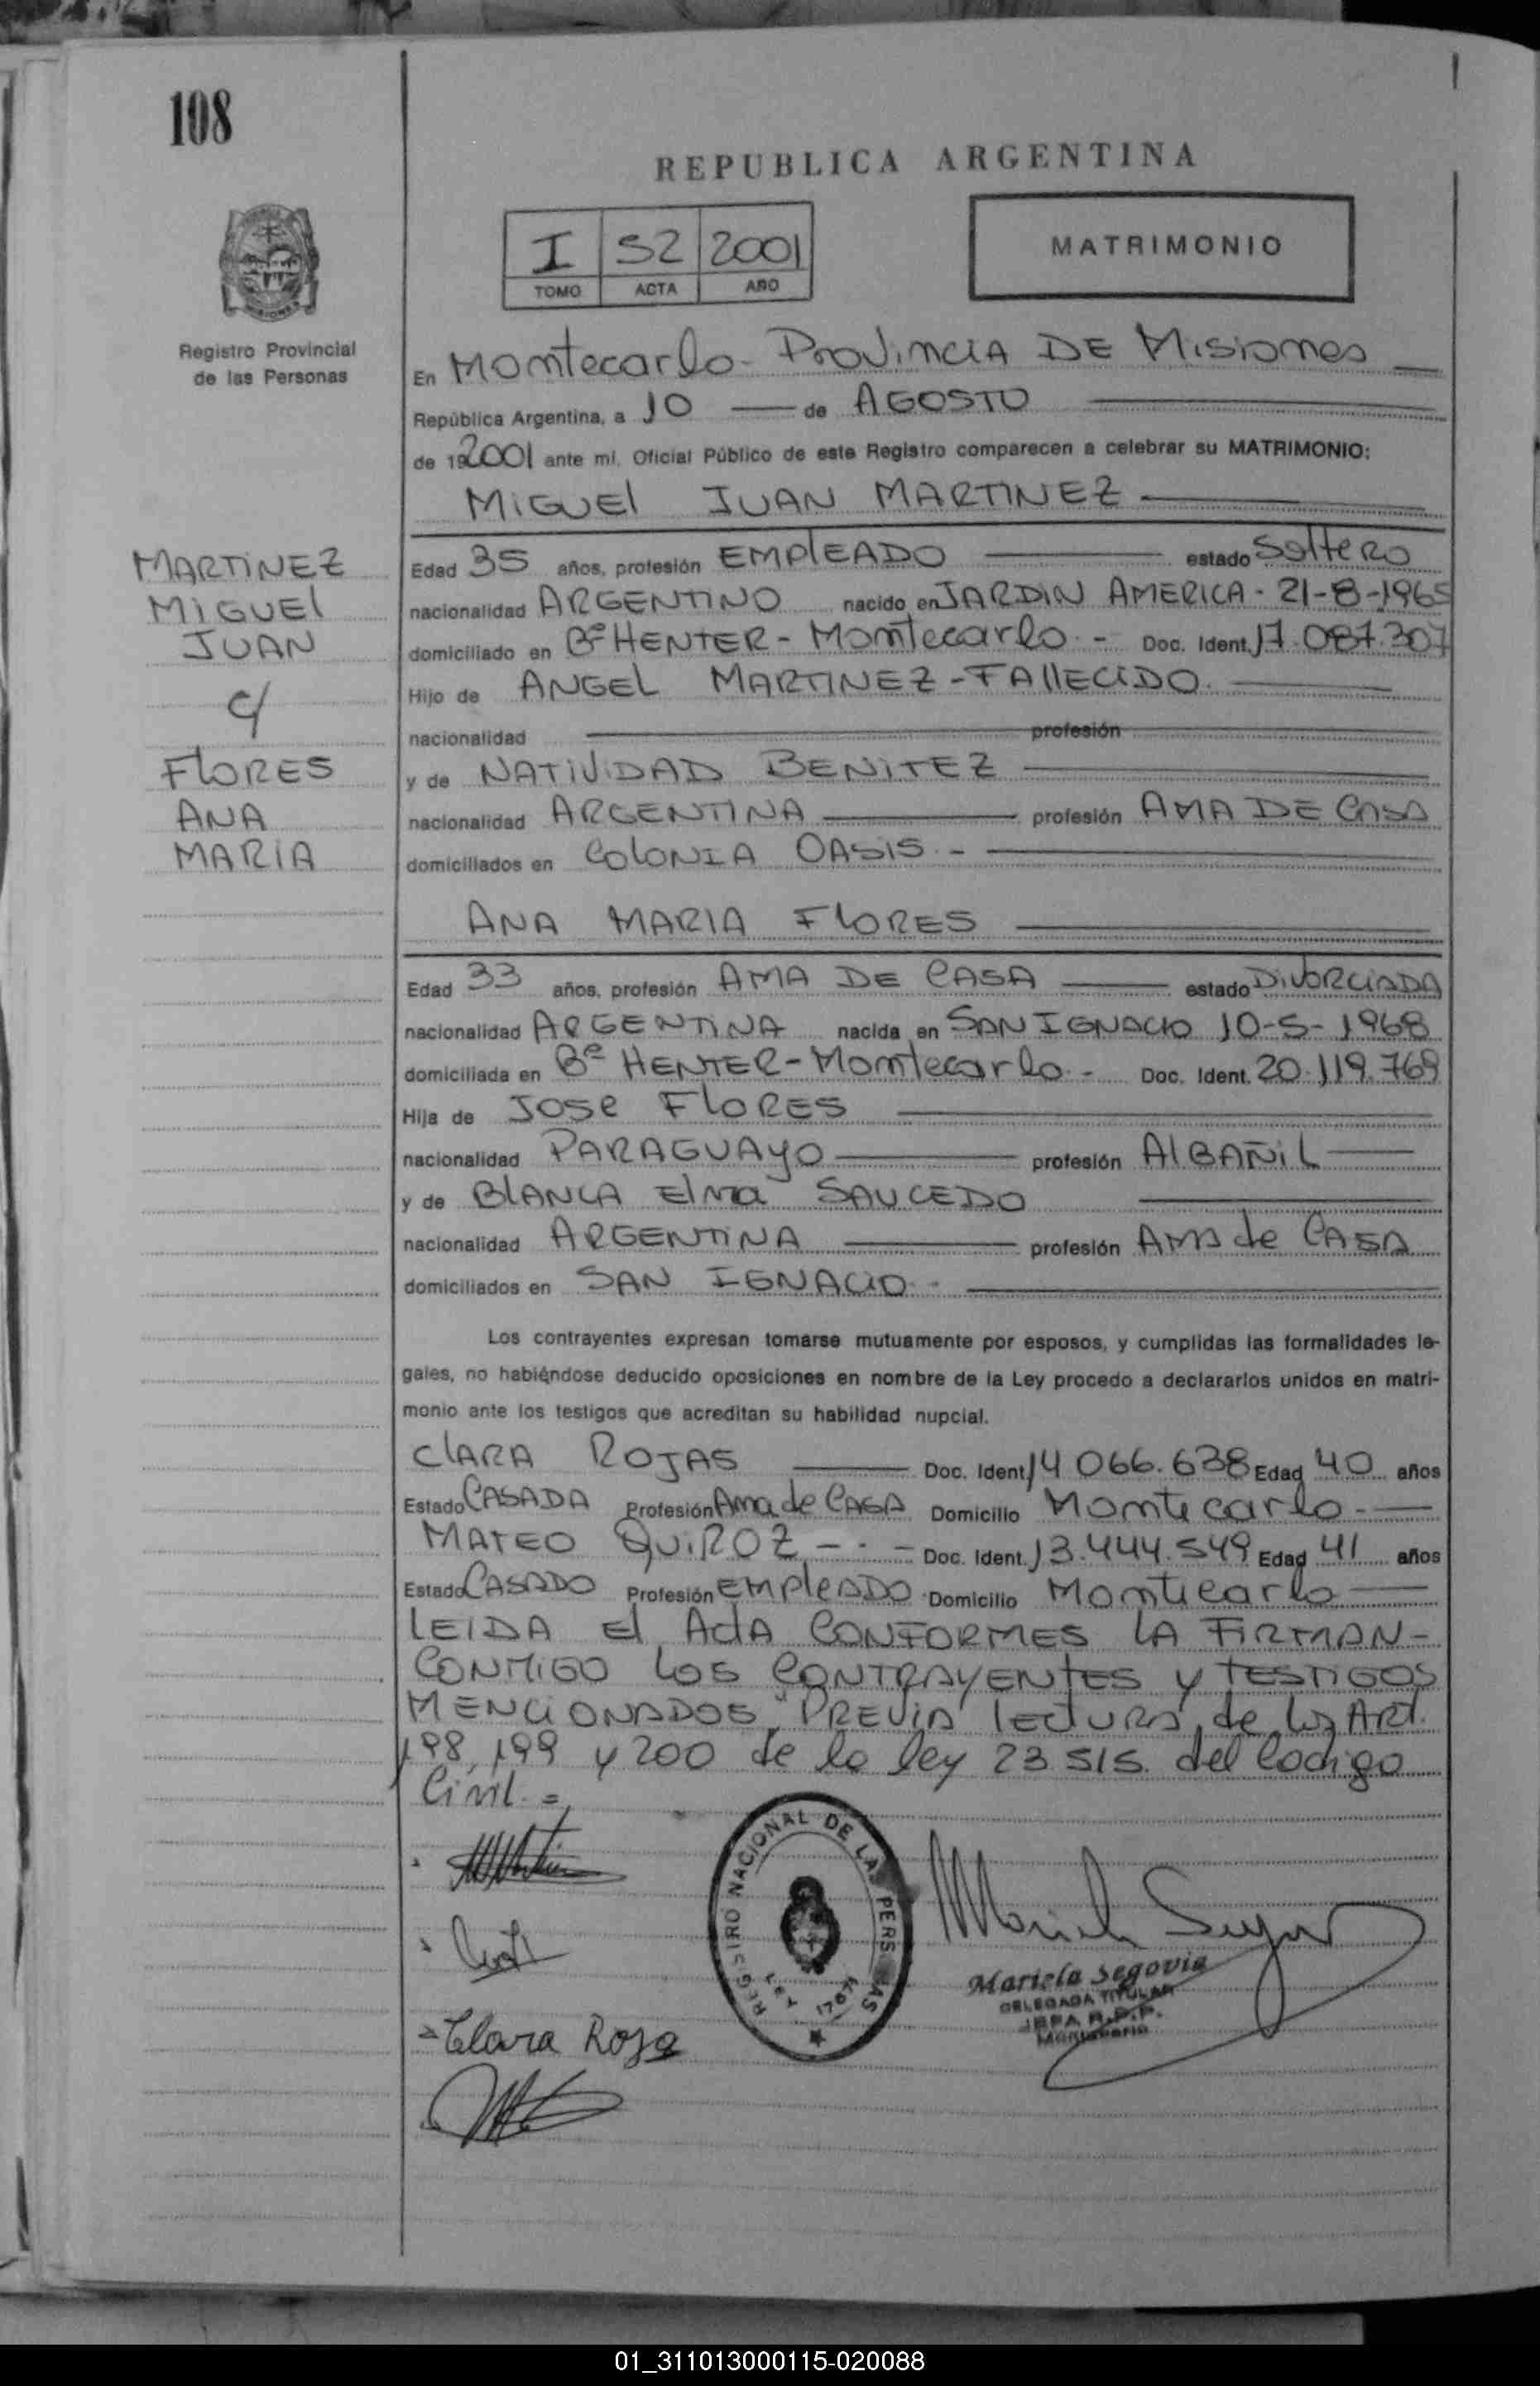 108
REPUBLICA ARGENTINA
I 52 2001
TOMO ACTA AÑO
MATRIMONIO
Registro Provincial
de las Personas
En Montecarlo - Provincia DE Misiones
República Argentina, a 10 de AGOSTO
de 192001 ante mí, Oficial Público de este Registro comparecen a celebrar su MATRIMONIO:
MIGUEL JUAN MARTINEZ
MARTINEZ
MIGUEL
JUAN
c/
FLORES
ANA
MARIA
Edad 35 años, profesión EMPLEADO estado Soltero
nacionalidad ARGENTINO nacido en JARDIN AMERICA - 21-8-1965
domiciliado en Bº HENTER - Montecarlo - Doc. Ident. 17.087.307
Hijo de ANGEL MARTINEZ - FALLECIDO.
nacionalidad profesión
y de NATIVIDAD BENITEZ
nacionalidad ARGENTINA profesión AMA DE CASA
domiciliados en COLONIA OASIS -
ANA MARIA FLORES
Edad 33 años, profesión AMA DE CASA estado DIVORCIADA
nacionalidad ARGENTINA nacida en SAN IGNACIO 10-5-1968
domiciliada en Bº HENTER - Montecarlo - Doc. Ident. 20.119.769
Hija de JOSE FLORES
nacionalidad PARAGUAYO profesión ALBAÑIL
y de BLANCA Elma SAUCEDO
nacionalidad ARGENTINA profesión AMA de CASA
domiciliados en SAN IGNACIO -
Los contrayentes expresan tomarse mutuamente por esposos, y cumplidas las formalidades le-
gales, no habiéndose deducido oposiciones en nombre de la Ley procedo a declararlos unidos en matri-
monio ante los testigos que acreditan su habilidad nupcial.
CLARA ROJAS Doc. Ident. 14 066.638 Edad 40 años
Estado CASADA Profesión Ama de CASA Domicilio Montecarlo -
MATEO QUIROZ - . - Doc. Ident. 13.444.549 Edad 41 años
Estado CASADO Profesión EMPLEADO Domicilio Montecarlo
LEIDA El ActA CONFORMES LA FIRMAN -
CONMIGO LOS CONTRAYENTES y TESTIGOS
MENCIONADOS, "PREVIA lECTURA, de los ART.
198, 199 y 200 de la ley 23.515. del Codigo
Civil. =
REGISTRO NACIONAL DE LAS PERSONAS
LEY 17671
Clara Roja
Mariela Segovia
DELEGADA TITULAR
Montecarlo
01_311013000115-020088